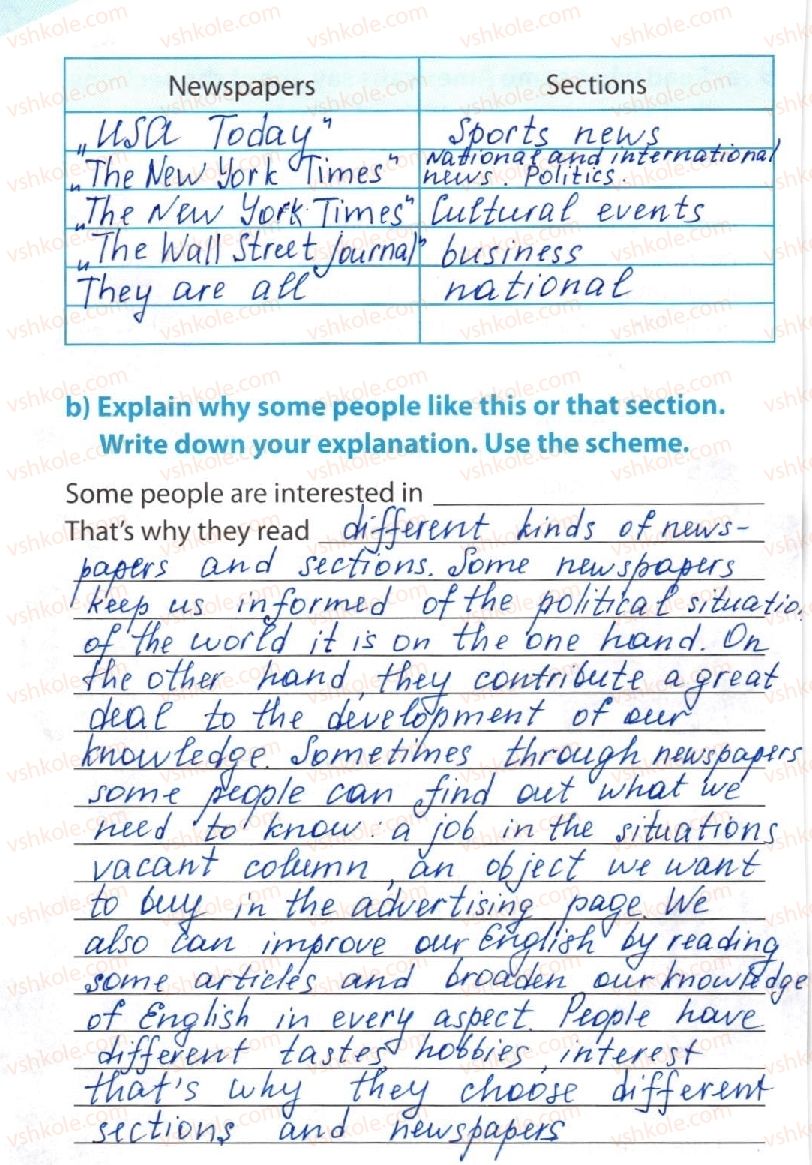 Newspapers Sections
„USA Today" Sports news
„The New York Times" National and international news. Politics.
„The New York Times" Cultural events
„The Wall Street Journal" business
They are all national
b) Explain why some people like this or that section.
Write down your explanation. Use the scheme.
Some people are interested in
That's why they read different kinds of news-
papers and sections. Some newspapers
keep us informed of the political situatio
of the world it is on the one hand. On
the other hand, they contribute a great
deal to the development of our
knowledge. Sometimes through newspapers
some people can find out what we
need to know: a job in the situations
vacant column, an object we want
to buy in the advertising page. We
also can improve our English by reading
some articles and broaden our knowledge
of English in every aspect. People have
different tastes hobbies, interest
that's why they choose different
sections and newspapers
vshkole.com